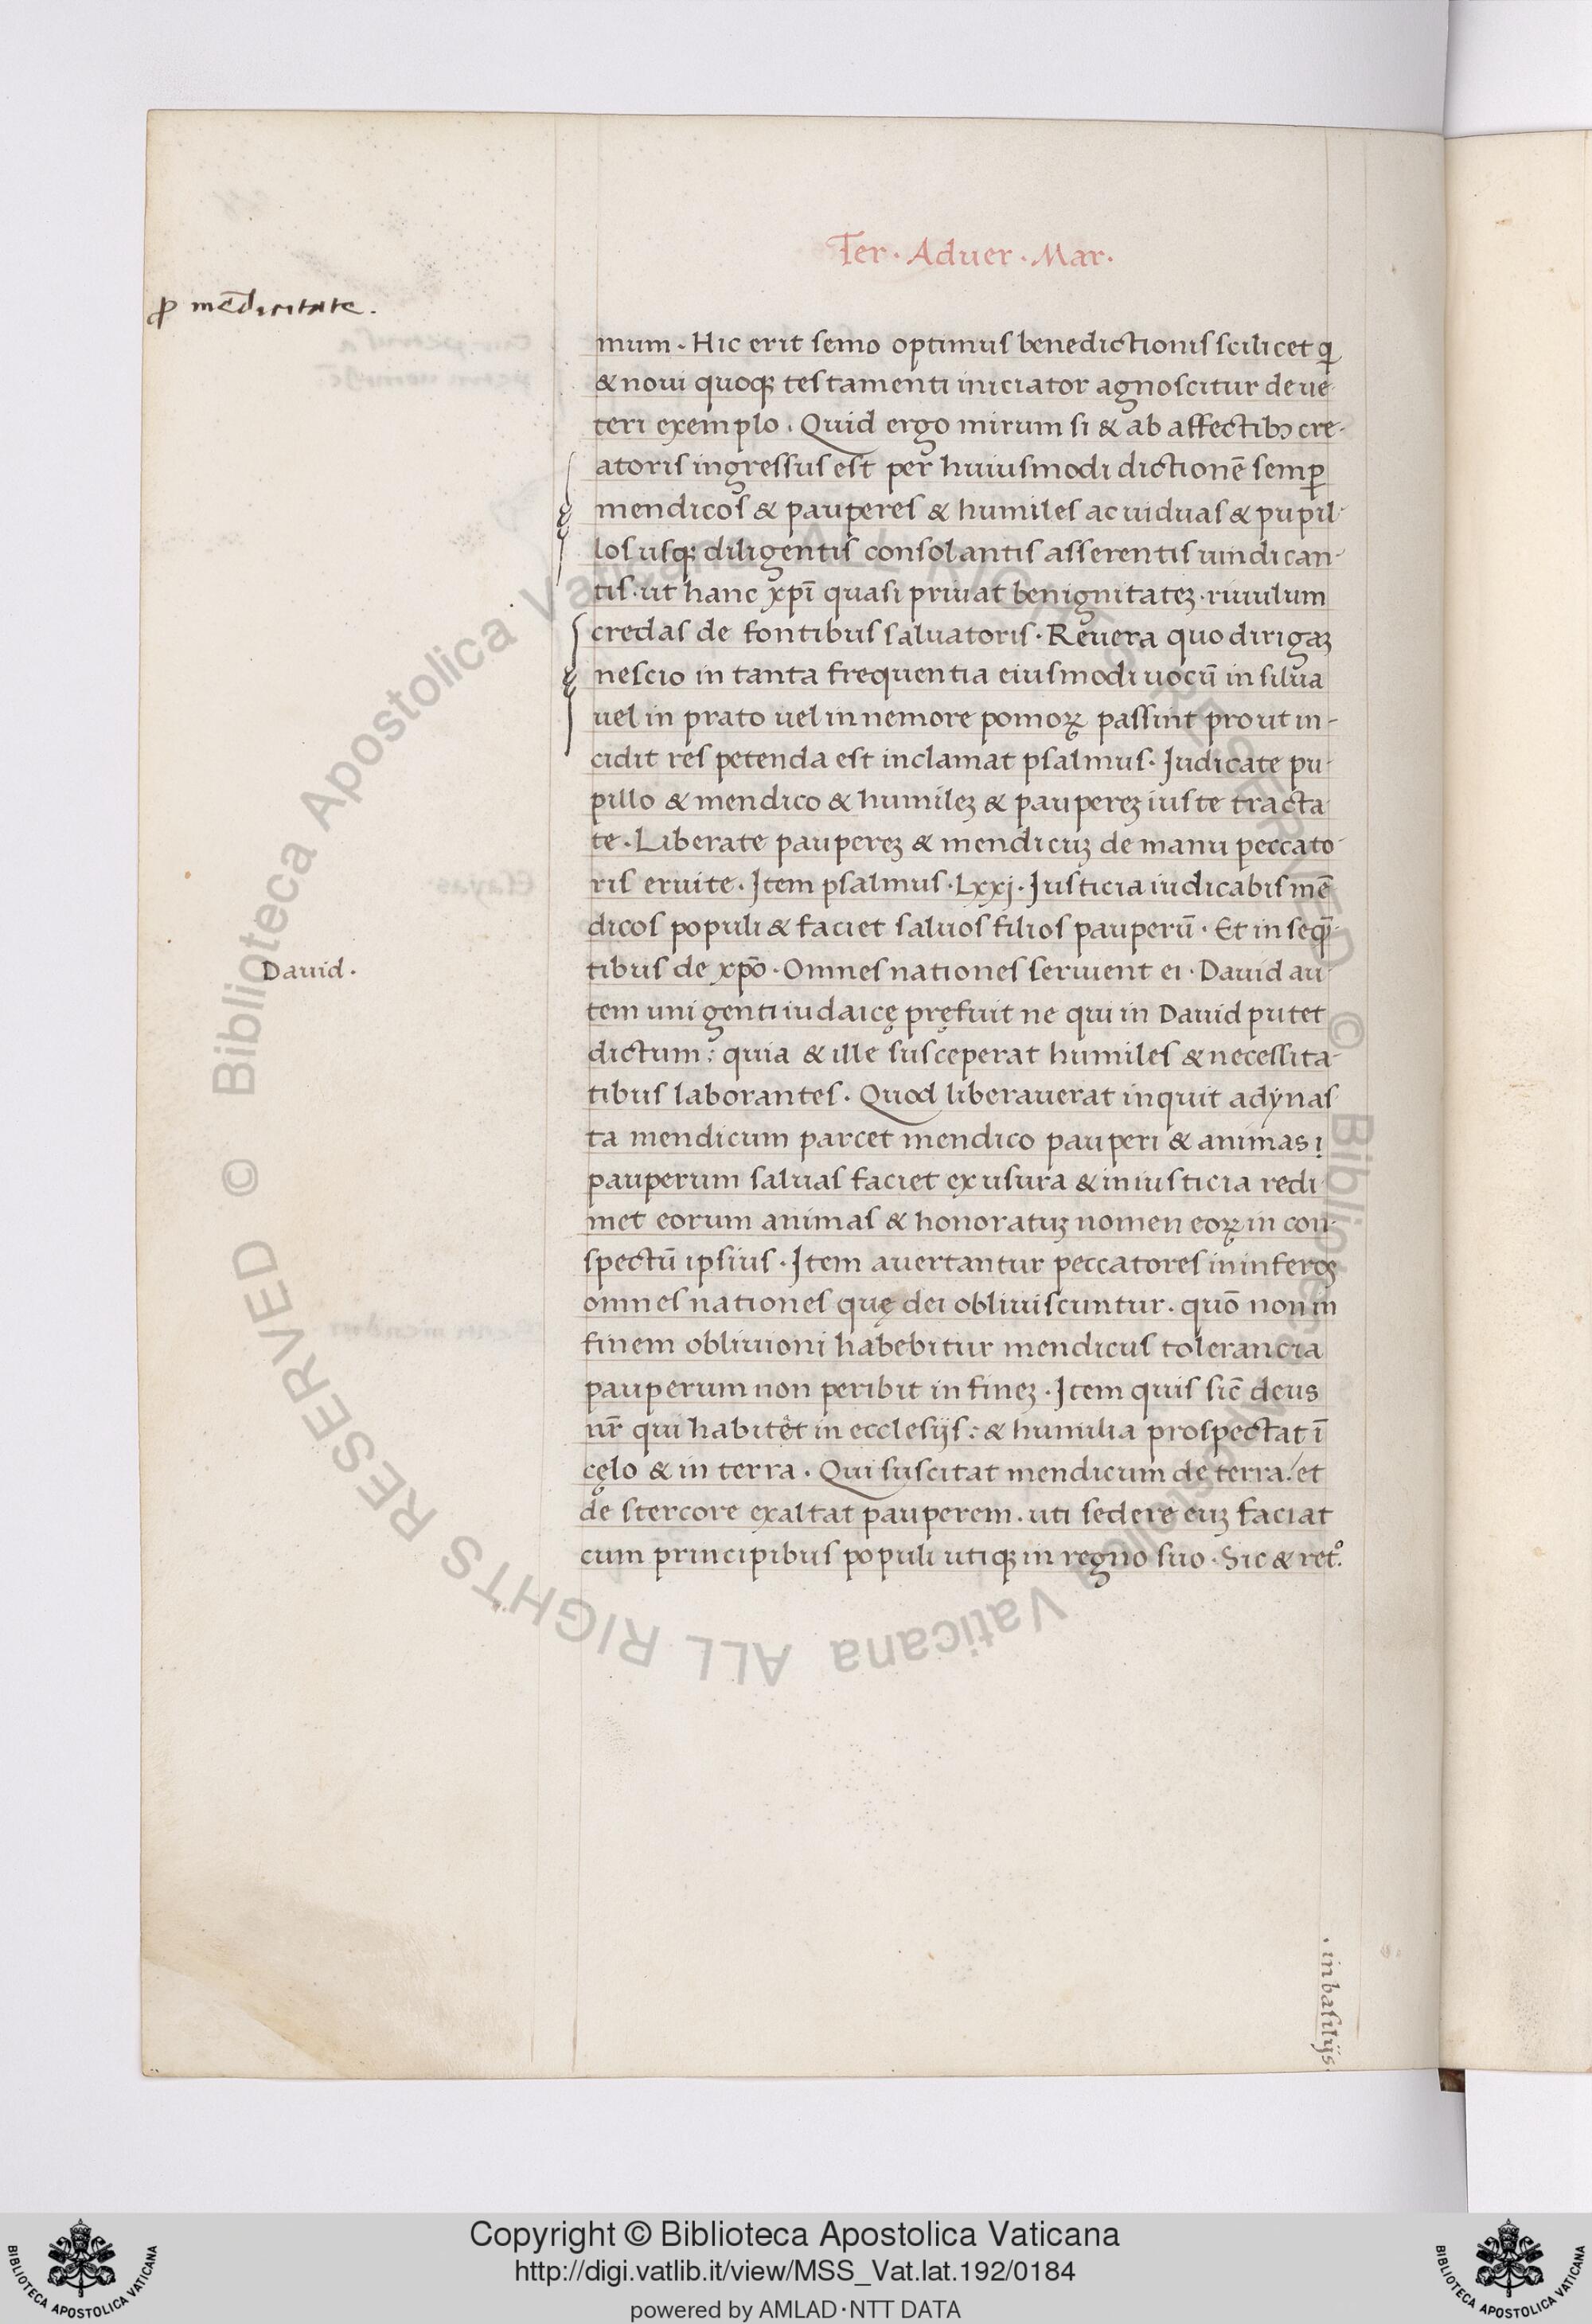 Ter · Aduer · Mar ·
ꝓ mēdicitate.
mum · Hic erit semo optimus benedictionis scilicet q̄
& noui quoqꝫ testamenti iniciator agnoscitur de ue-
teri exemplo · Quid ergo mirum si & ab affectibꝫ cre-
atoris ingressus est per huiusmodi dictionē semꝑ
mendicos & pauperes & humiles ac uiduas & pupil-
los usqꝫ diligentis consolantis asserentis uindican-
tis · ut hanc xp̄i quasi priuat benignitateꝫ · riuulum
credas de fontibus saluatoris · Reuera quo dirigaꝫ
nescio in tanta frequentia eiusmodi uocū in silua
uel in prato uel in nemore pomoꝝ passint prout in-
cidit res petenda est inclamat psalmus · Iudicate pu-
pillo & mendico & humileꝫ & paupereꝫ iuste tracta
te · Liberate paupereꝫ & mendicuꝫ de manu peccato-
ris eruite · Item psalmus · Lxxj · Iusticia iudicabis mē
dicos populi & faciet saluos filios pauperū · Et in seqū-
David ·
tibus de xp̄o · Omnes nationes seruient ei · Dauid au-
tem uni genti iudaicę pręfuit ne qui in Dauid putet
dictum : quia & ille susceperat humiles & necessita-
tibus laborantes · Quod liberauerat inquit adynas
ta mendicum parcet mendico pauperi & animas
pauperum saluas faciet ex usura & iniusticia redi
met eorum animas & honoratuꝫ nomen eoꝝ in con-
spectū ipsius · Item auertantur peccatores in inferos
omnes nationes quę dei obliuiscuntur · quō non in
finem obliuioni habebitur mendicus tolerancia
pauperum non peribit in fineꝫ · Item quis sic̄ deus
nr̄ qui habitet in ecclesijs : & humilia prospectat ī
cęlo & in terra · Qui suscitat mendicum de terra / et
de stercore exaltat pauperem · uti sedere euꝫ faciat
cum principibus populi utiqꝫ in regno suo · Sic & ret°.
· in basilijs
© Biblioteca Apostolica Vaticana ALL RIGHTS RESERVED © Biblioteca Apostolica Vaticana ALL RIGHTS RESERVED
Copyright © Biblioteca Apostolica Vaticana
http://digi.vatlib.it/view/MSS_Vat.lat.192/0184
powered by AMLAD·NTT DATA
BIBLIOTECA APOSTOLICA VATICANA
BIBLIOTECA APOSTOLICA VATICANA